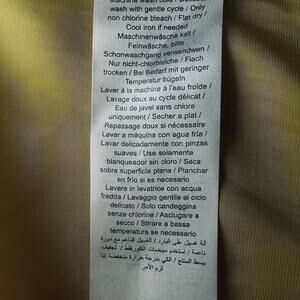 Machine wash cold / Delicate
wash with gentle cycle / Only
non chlorine bleach / Flat dry /
Cool iron if needed
Maschinenwäsche kalt /
Feinwäsche, bitte
Schonwaschgang verwendwen /
Nur nicht-chlorbleiche / Flach
trocken / Bei Bedarf mit geringer
Temperatur bügeln
Laver à la machine à l'eau froide /
Lavage doux au cycle délicat /
Eau de javel sans chlore
uniquement / Secher a plat /
Repassage doux si nécessaire
Lavar a máquina con agua fría /
Lavar delicadamente con pinzas
suaves / Use solamente
blanqueador sin cloro / Seca
sobre superficie plana / Planchar
en frío si es necesario
Lavare in lavatrice con acqua
fredda / Lavaggio gentile al ciclo
delicato / Solo candeggina
senza chlorine / Asciugare a
secco / Stirare a bassa
temperatura se necessario
آلة غسيل على البارد / الغسيل الناعم مع دورة
ناعمة / تستخدم مبيضات الكلور فقط / تجفيف
ببسط المنتج / الكي بدرجة حرارة منخفضة إذا
لزم الأمر